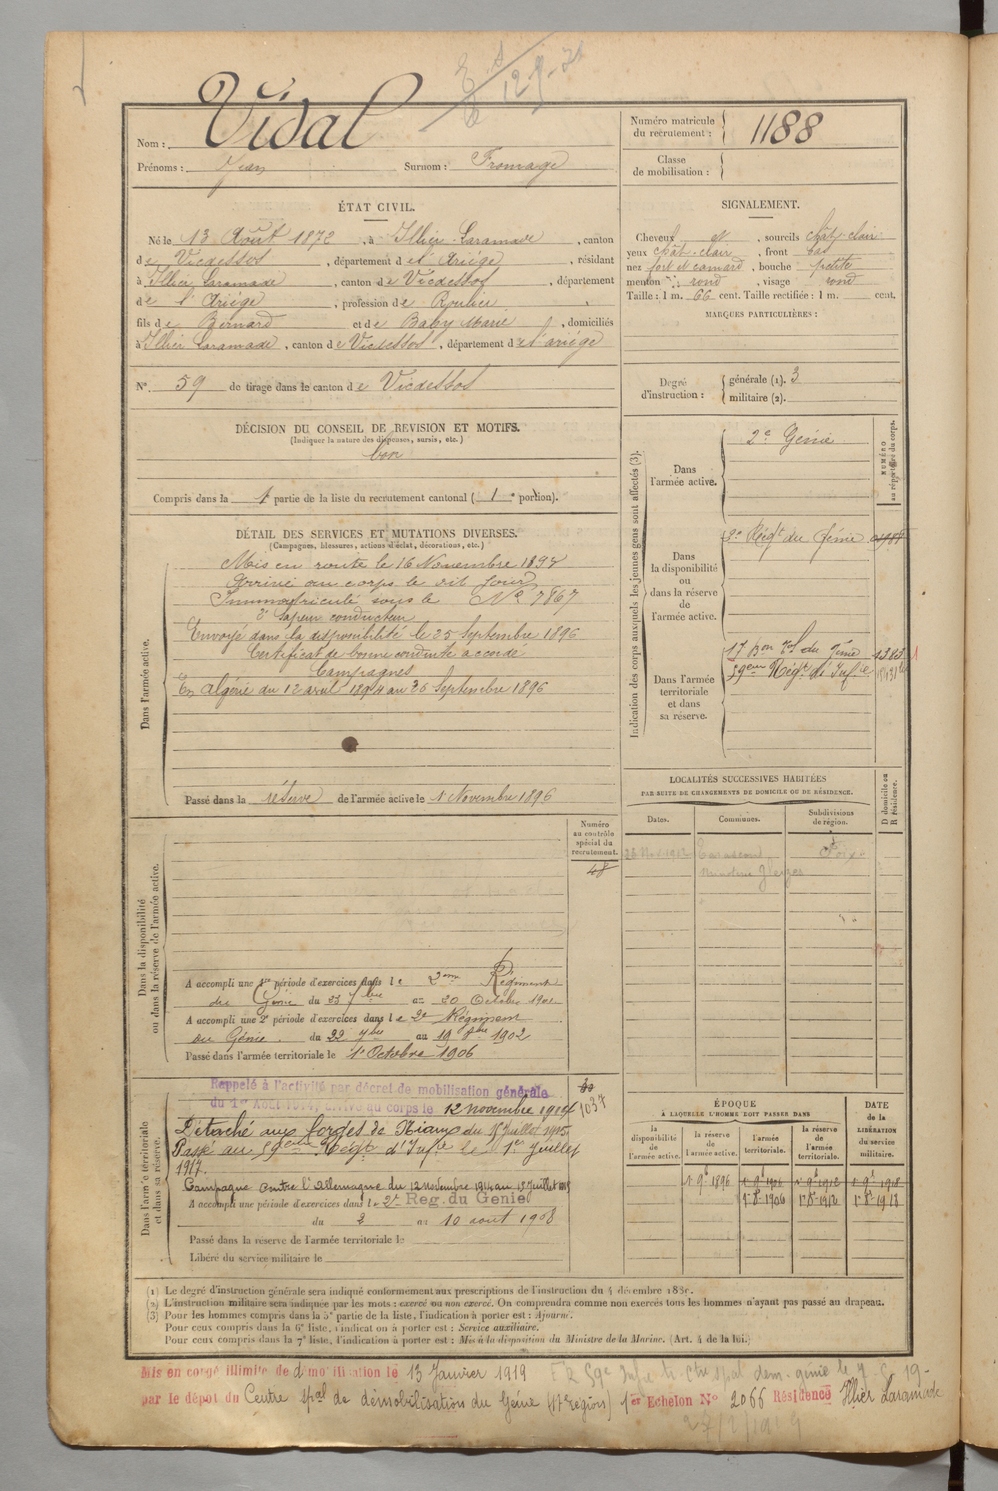 Vidal
Nom :
Prénoms : Jean Surnom : Fromage
Numéro matricule du recrutement : 1188
Classe de mobilisation :
ÉTAT CIVIL.
Né le 13 Août 1872, à Illier-Laramade, canton
de Vicdessos, département de l'Ariège, résidant
à Illier Laramade, canton de Vicdessos, département
de l'Ariège, profession de Roulier
fils de Bernard et de Baby Marie, domiciliés
à Illier Laramade, canton de Vicdessos, département de l'ariège
N° 59 de tirage dans le canton de Vicdessos
DÉCISION DU CONSEIL DE REVISION ET MOTIFS.
(Indiquer la nature des dispenses, sursis, etc.)
bon
Compris dans la 1 partie de la liste du recrutement cantonal (1e portion).
SIGNALEMENT.
Cheveux et, sourcils chât-clair
yeux chât-clair, front bas
nez fort et camard, bouche petite
menton rond, visage rond
Taille : 1 m. 66 cent. Taille rectifiée : 1 m. cent.
MARQUES PARTICULIÈRES :
Degré d'instruction :
générale (1). 3
militaire (2).
DÉTAIL DES SERVICES ET MUTATIONS DIVERSES.
(Campagnes, blessures, actions d'éclat, décorations, etc.)
Dans l'armée active.
Mis en route le 16 Novembre 1893
Arrivé au corps le dit jour
Immatriculé sous le N° 7867
2e Sapeur conducteur
Envoyé dans la disponibilité le 25 Septembre 1896
Certificat de bonne conduite accordé
Campagnes
En Algérie du 12 avril 1894 au 26 Septembre 1896
Passé dans la réserve de l'armée active le 1 Novembre 1896
Indication des corps auxquels les jeunes gens sont affectés (3).
NUMÉRO au répertoire du corps.
Dans l'armée active.
2e Génie
Dans la disponibilité ou dans la réserve de l'armée active.
2e Régt du Génie
Dans l'armée territoriale et dans sa réserve.
17 Bon Tal du Génie 1383
59eme Régt d'Infie
LOCALITÉS SUCCESSIVES HABITÉES
PAR SUITE DE CHANGEMENTS DE DOMICILE OU DE RÉSIDENCE.
Dates. Communes. Subdivisions de région. D domicile ou R résidence.
Tarascon Foix
Dans la disponibilité ou dans la réserve de l'armée active.
Numéro au contrôle spécial du recrutement.
48
A accompli une 1re période d'exercices dans le 2eme Régiment
du Génie du 23 7bre au 20 Octobre 1901
A accompli une 2e période d'exercices dans le 2e Régiment
du Génie du 22 7bre au 19 8bre 1902
Passé dans l'armée territoriale le 1er Octobre 1906
Dans l'armée territoriale et dans sa réserve.
Rappelé à l'activité par décret de mobilisation générale
du 1er Août 1914, arrivé au corps le 12 novembre 1914
1037
Détaché aux forges de Niaux du 15 Juillet 1915
Passé au 59eme Régt d'Infie le 1er Juillet
1917.
Campagne contre l'Allemagne du 12 novembre 1914 au 15 Juillet 1915
A accompli une période d'exercices dans le 2e Reg. du Genie
du 2 au 10 aout 1908
Passé dans la réserve de l'armée territoriale le
Libéré du service militaire le
ÉPOQUE
A LAQUELLE L'HOMME DOIT PASSER DANS
la disponibilité de l'armée active. la réserve de l'armée active. l'armée territoriale. la réserve de l'armée territoriale.
DATE de la LIBÉRATION du service militaire.
1 9b 1896 1 9b 1906 1 9b 1912 1 9b 1918
1er 8b 1906 1er 8b 1912 1er 8b 1918
(1) Le degré d'instruction générale sera indiqué conformément aux prescriptions de l'instruction du 4 décembre 1889.
(2) L'instruction militaire sera indiquée par les mots : exercé ou non exercé. On comprendra comme non exercés tous les hommes n'ayant pas passé au drapeau.
(3) Pour les hommes compris dans la 5e partie de la liste, l'indication à porter est : Ajourné.
Pour ceux compris dans la 6e liste, l'indication à porter est : Service auxiliaire.
Pour ceux compris dans la 7e liste, l'indication à porter est : Mis à la disposition du Ministre de la Marine. (Art. 4 de la loi.)
Mis en congé illimité de démobilisation le 13 Janvier 1919
par le dépôt du Centre spal de démobilisation du Génie (17e région) 1er Echelon N° 2066 Résidence Illier Laramade
27/2/1919